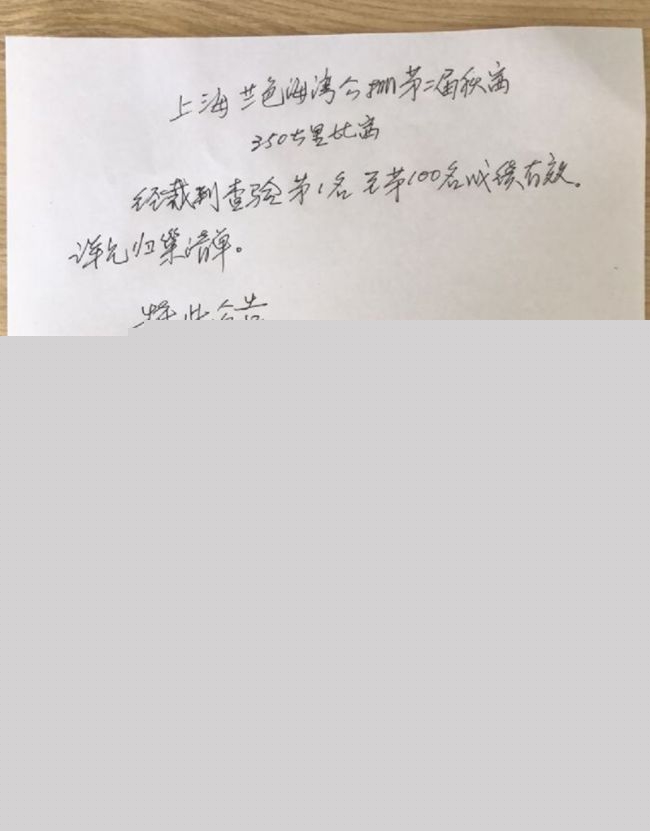 上海兰色海湾公棚第二届秋赛
350公里比赛
经裁判查验第1名至第100名成绩有效。
详见归巢清单。
特此公告